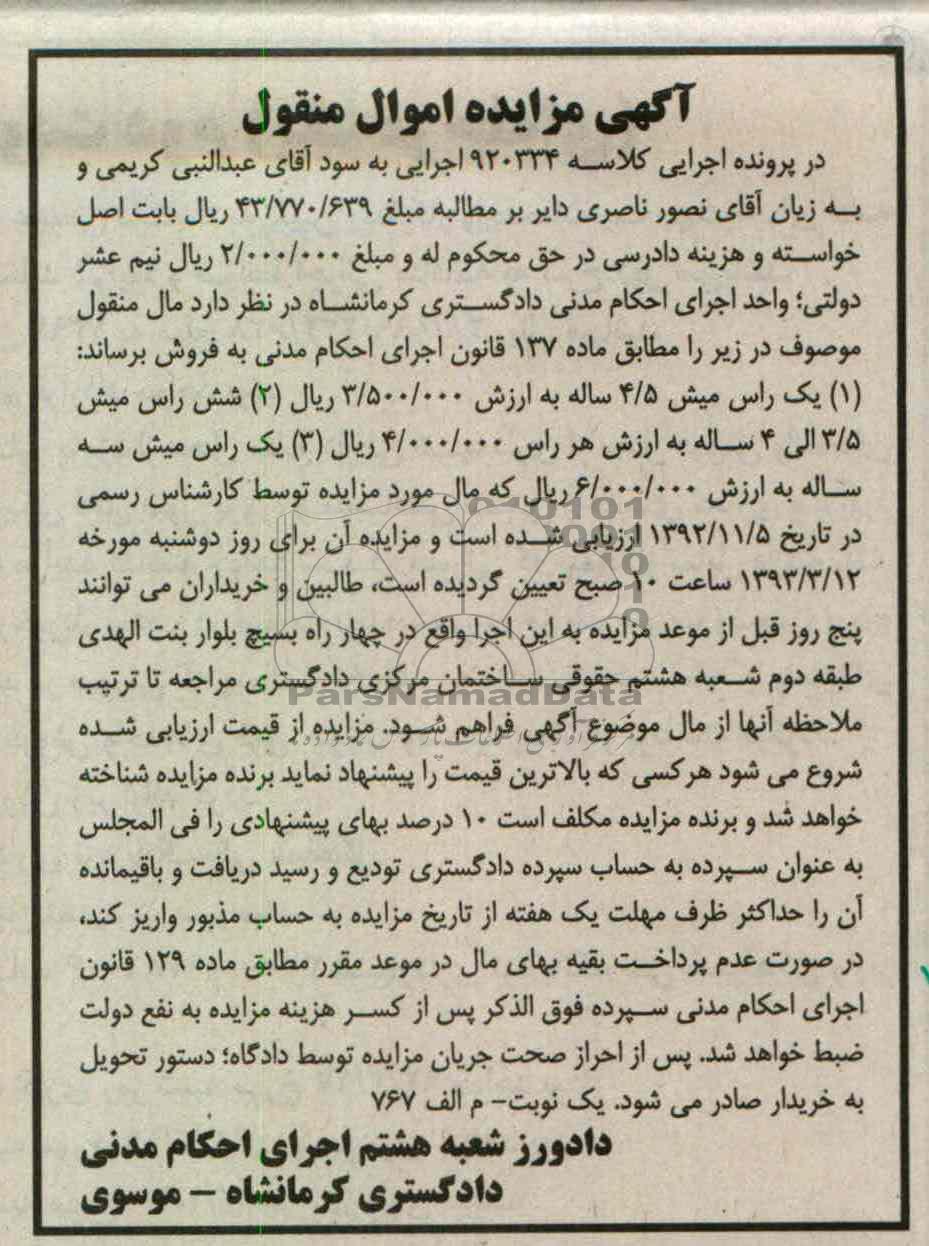 آگهی مزایده اموال منقول
در پرونده اجرایی کلاسه ۹۲۰۳۳۴ اجرایی به سود آقای عبدالنبی کریمی و
به زیان آقای نصور ناصری دایر بر مطالبه مبلغ ۴۳/۷۷۰/۶۳۹ ریال بابت اصل
خواسته و هزینه دادرسی در حق محکوم له و مبلغ ۲/۰۰۰/۰۰۰ ریال نیم عشر
دولتی؛ واحد اجرای احکام مدنی دادگستری کرمانشاه در نظر دارد مال منقول
موصوف در زیر را مطابق ماده ۱۳۷ قانون اجرای احکام مدنی به فروش برساند:
(۱) یک راس میش ۴/۵ ساله به ارزش ۳/۵۰۰/۰۰۰ ریال (۲) شش راس میش
۳/۵ الی ۴ ساله به ارزش هر راس ۴/۰۰۰/۰۰۰ ریال (۳) یک راس میش سه
ساله به ارزش ۶/۰۰۰/۰۰۰ ریال که مال مورد مزایده توسط کارشناس رسمی
در تاریخ ۱۳۹۲/۱۱/۵ ارزیابی شده است و مزایده آن برای روز دوشنبه مورخه
۱۳۹۳/۳/۱۲ ساعت ۱۰ صبح تعیین گردیده است، طالبین و خریداران می توانند
پنج روز قبل از موعد مزایده به این اجرا واقع در چهار راه بسیج بلوار بنت الهدی
طبقه دوم شعبه هشتم حقوقی ساختمان مرکزی دادگستری مراجعه تا ترتیب
ParsNamadData
ملاحظه آنها از مال موضوع آگهی فراهم شود. مزایده از قیمت ارزیابی شده
شروع می شود هرکسی که بالاترین قیمت را پیشنهاد نماید برنده مزایده شناخته
خواهد شد و برنده مزایده مکلف است ۱۰ درصد بهای پیشنهادی را فی المجلس
به عنوان سپرده به حساب سپرده دادگستری تودیع و رسید دریافت و باقیمانده
آن را حداکثر ظرف مهلت یک هفته از تاریخ مزایده به حساب مذبور واریز کند،
در صورت عدم پرداخت بقیه بهای مال در موعد مقرر مطابق ماده ۱۲۹ قانون
اجرای احکام مدنی سپرده فوق الذکر پس از کسر هزینه مزایده به نفع دولت
ضبط خواهد شد. پس از احراز صحت جریان مزایده توسط دادگاه؛ دستور تحویل
به خریدار صادر می شود. یک نوبت- م الف ۷۶۷
دادورز شعبه هشتم اجرای احکام مدنی
دادگستری کرمانشاه – موسوی